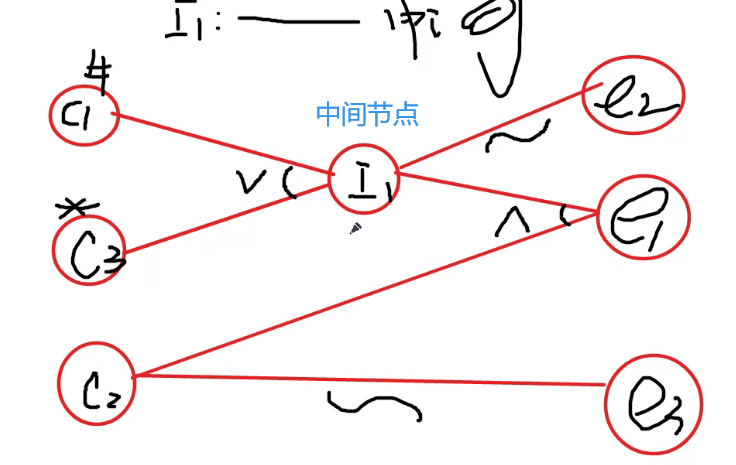 I₁: —— 中间
#
C1
中间节点
e2
~
V
I₁
*
C3
e1
∧
C2
~
e3